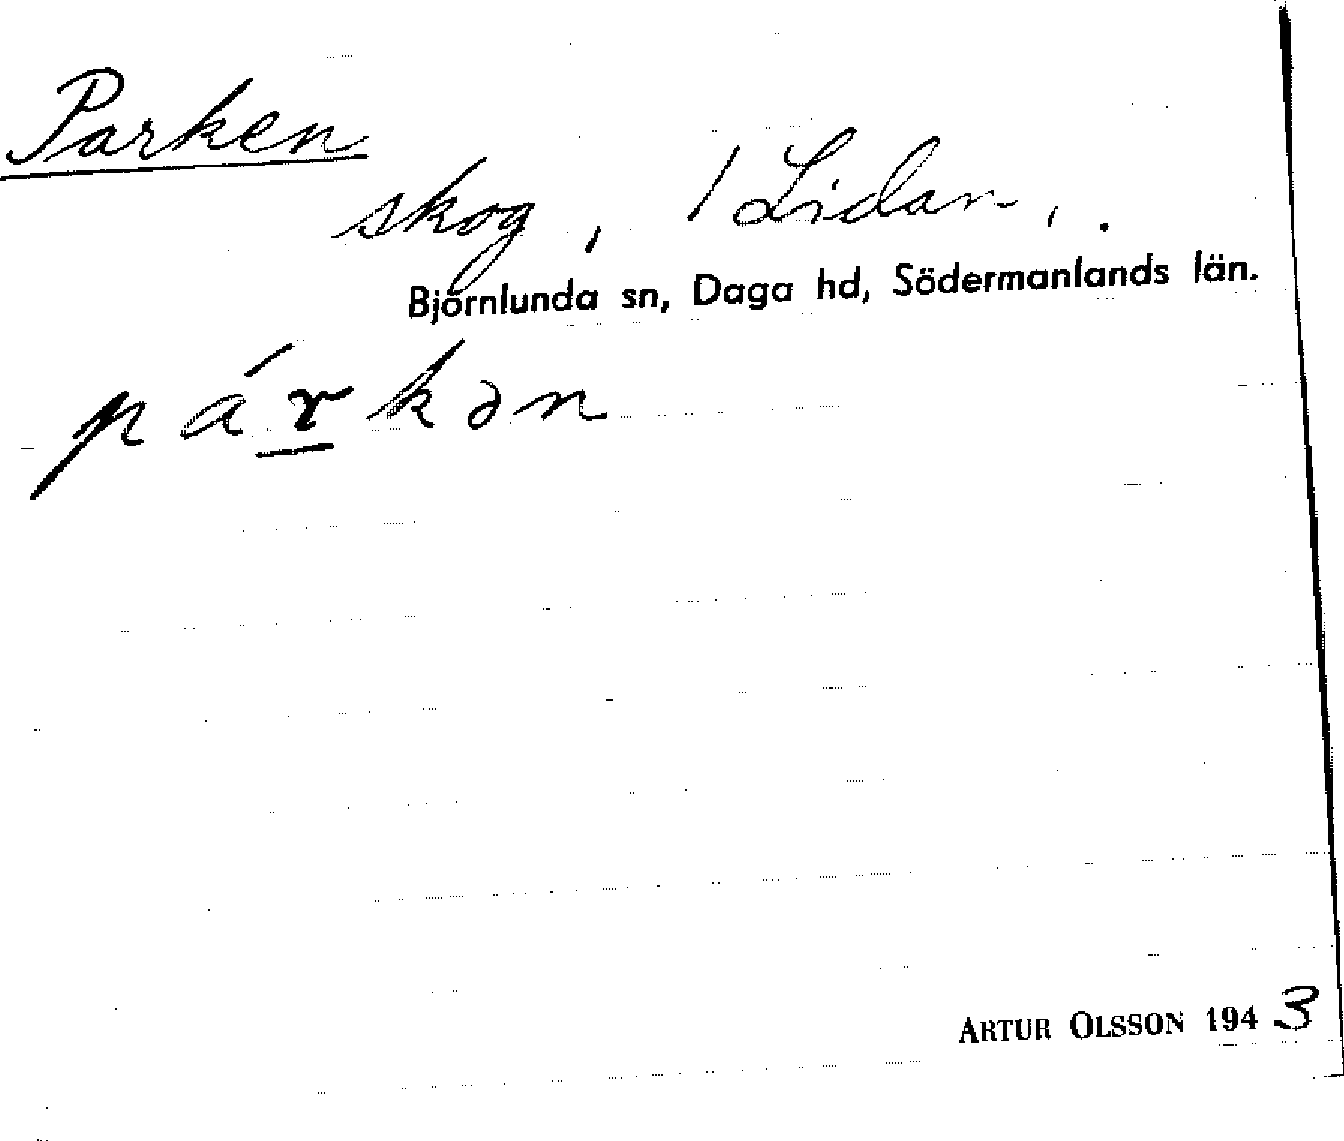 Parken
skog, 1 Lidan,.
Björnlunda sn, Daga hd, Södermanlands län.
párkən
ARTUR OLSSON 1943